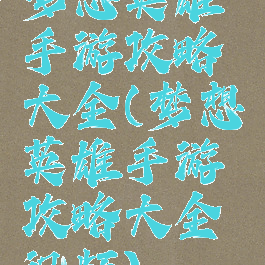 梦想英雄
手游攻略
大全(梦想
英雄手游
攻略大全
视频)